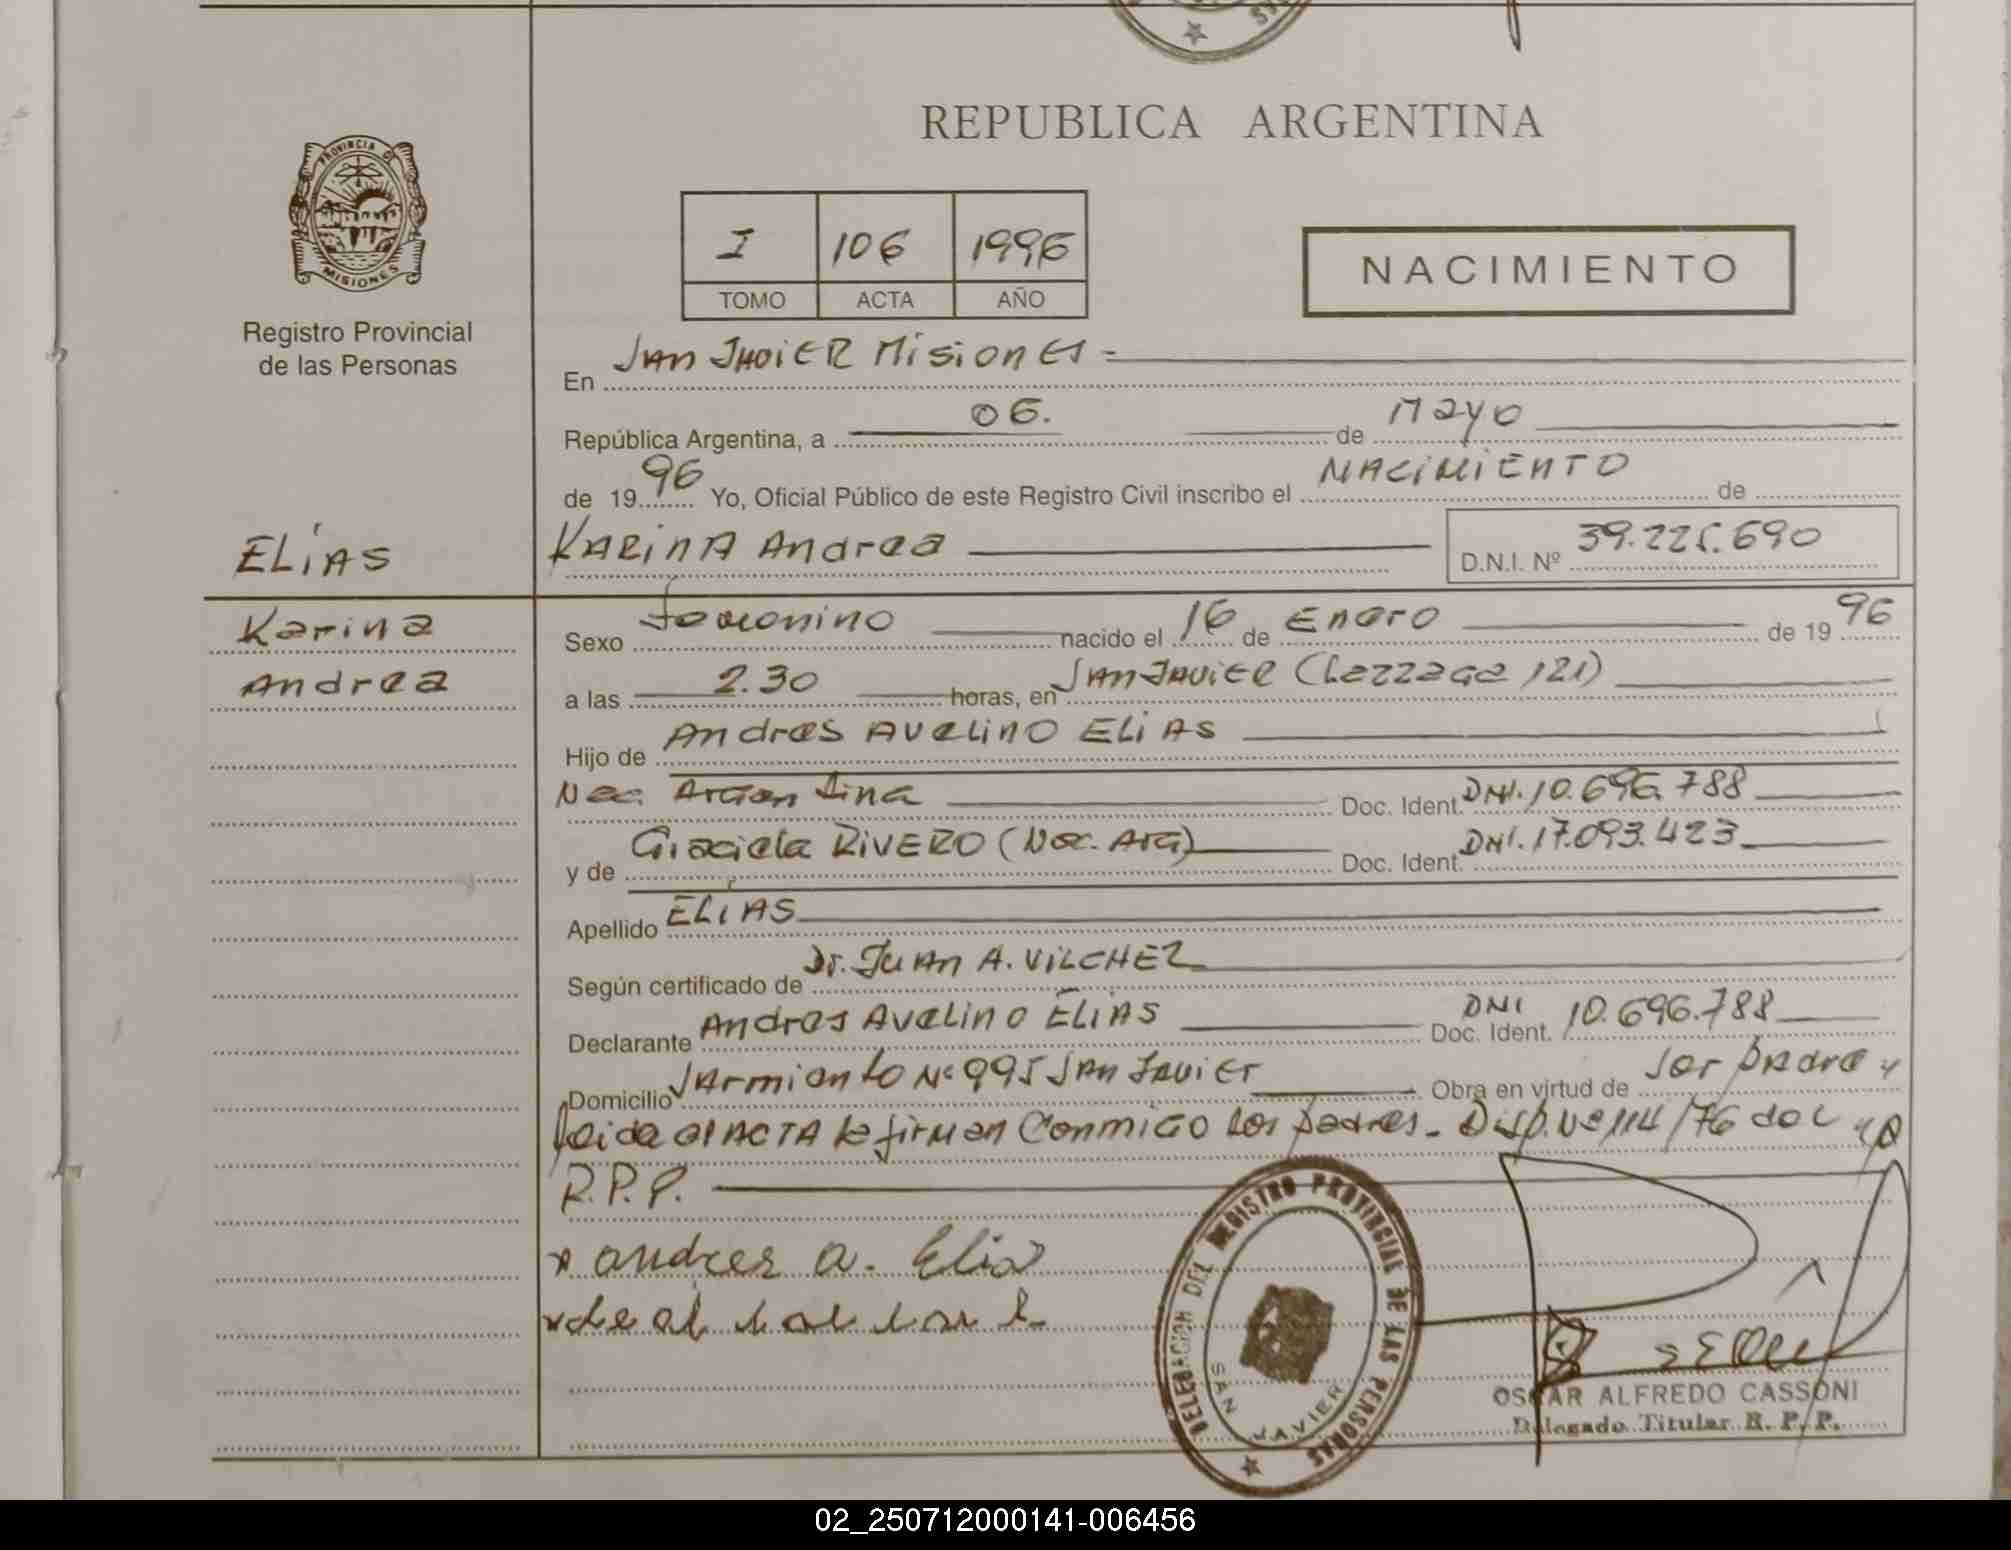 REPUBLICA ARGENTINA
PROVINCIA DE
MISIONES
Registro Provincial
de las Personas
I 106 1996
TOMO ACTA AÑO
NACIMIENTO
En San Javier Misiones =
República Argentina, a 06. de Mayo
de 19 96 Yo, Oficial Público de este Registro Civil inscribo el NACIMIENTO de
ELIAS
KARINA Andrea D.N.I. Nº 39.225.690
Karina
Andrea
Sexo Femenino nacido el 16 de Enero de 19 96
a las 2.30 horas, en San Javier (Lezzaga 121)
Hijo de Andres Avelino ELIAS
Nac. Argentina Doc. Ident. DNI. 10.696.788
y de Graciela RIVERO (Nac. Arg) Doc. Ident. DNI. 17.093.423
Apellido ELIAS
Según certificado de Dr. Juan A. VILCHEZ
Declarante Andres Avelino ELIAS DNI Doc. Ident. 10.696.788
Domicilio Sarmiento Nº 995 San Javier Obra en virtud de ser padre y
leida el ACTA la firman conmigo los padres. Disp. Nº 114/76 del
R.P.P.
andres a. Elias
DELEGACION DEL REGISTRO PROVINCIAL DE LAS PERSONAS
SAN JAVIER
OSCAR ALFREDO CASSONI
Delegado Titular R. P. P.
02_250712000141-006456